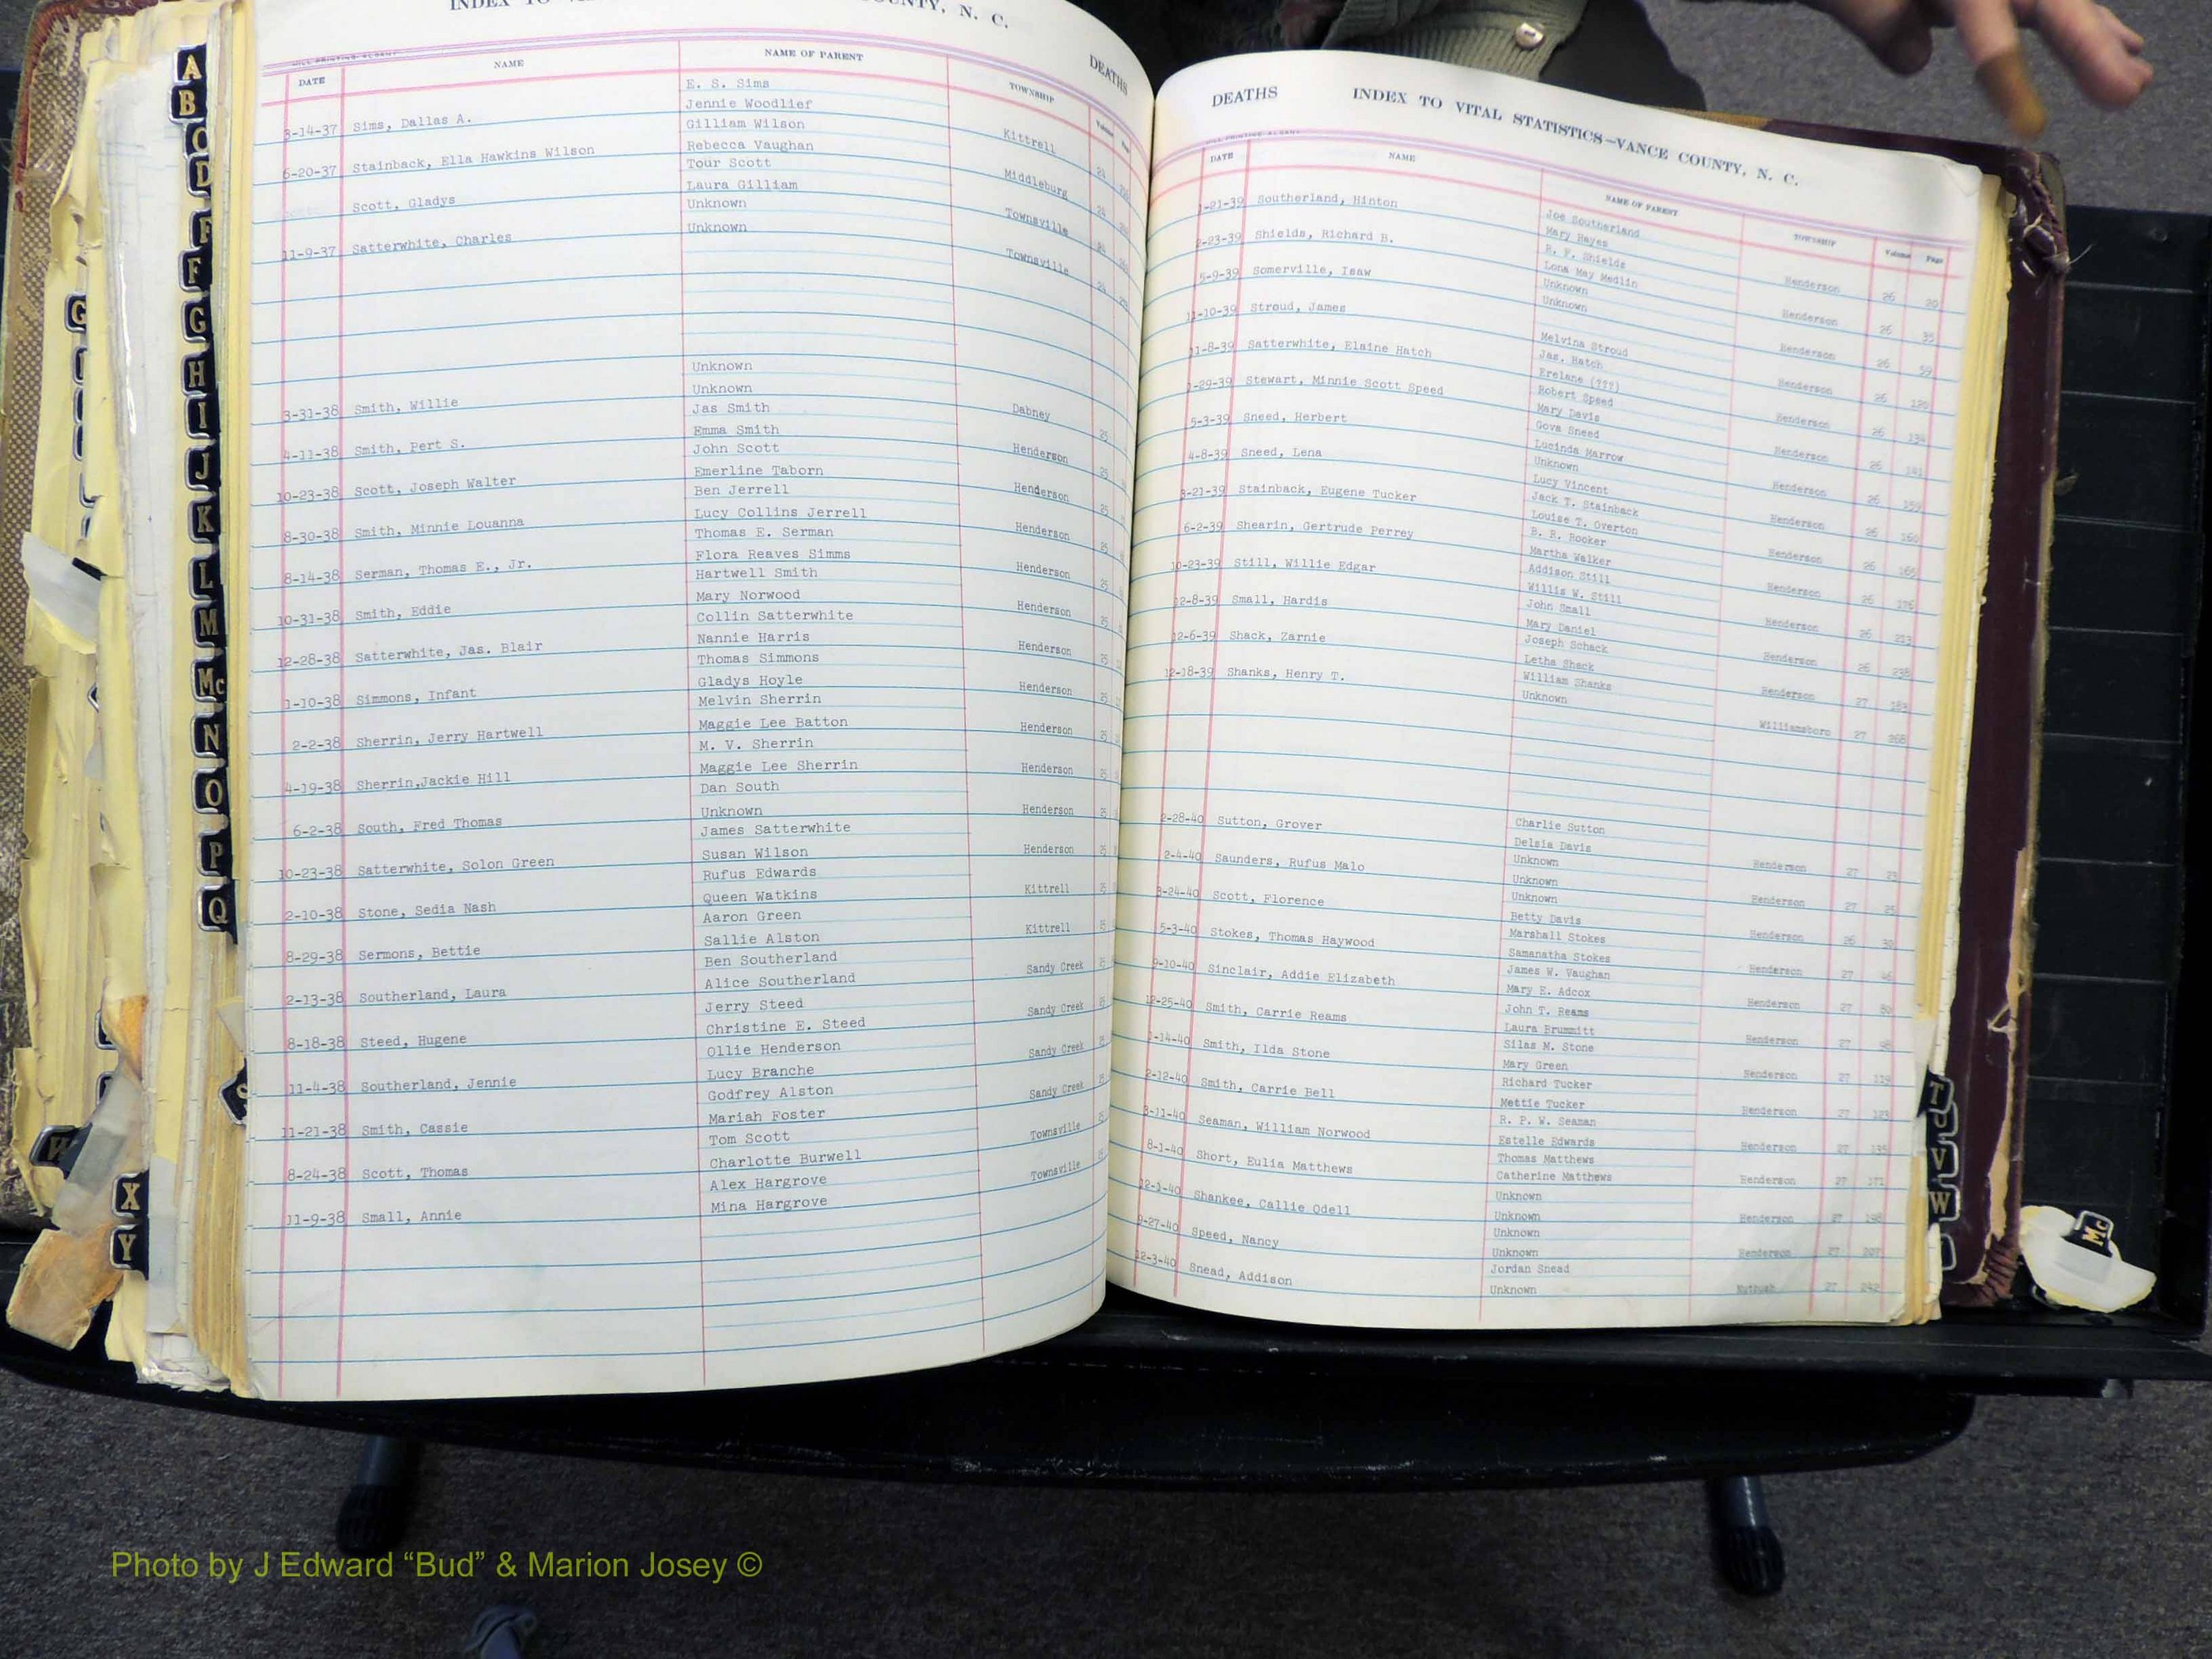 INDEX TO
COUNTY, N. C.
DEATHS
DATE NAME NAME OF PARENT TOWNSHIP Volume Page
E. S. Sims
3-14-37 Sims, Dallas A. Jennie Woodlief Kittrell 24
Gilliam Wilson
6-20-37 Stainback, Ella Hawkins Wilson Rebecca Vaughan Middleburg 24
Tour Scott
Scott, Gladys Laura Gilliam Townsville 24
Unknown
11-9-37 Satterwhite, Charles Unknown Townsville 24
Unknown
3-31-38 Smith, Willie Unknown Dabney 25
Jas Smith
4-11-38 Smith, Pert S. Emma Smith Henderson 25
John Scott
10-23-38 Scott, Joseph Walter Emerline Taborn Henderson 25
Ben Jerrell
8-30-38 Smith, Minnie Louanna Lucy Collins Jerrell Henderson 25
Thomas E. Serman
8-14-38 Serman, Thomas E., Jr. Flora Reaves Simms Henderson 25
Hartwell Smith
10-31-38 Smith, Eddie Mary Norwood Henderson 25
Collin Satterwhite
12-28-38 Satterwhite, Jas. Blair Nannie Harris Henderson 25
Thomas Simmons
1-10-38 Simmons, Infant Gladys Hoyle Henderson 25
Melvin Sherrin
2-2-38 Sherrin, Jerry Hartwell Maggie Lee Batton Henderson 25
M. V. Sherrin
4-19-38 Sherrin,Jackie Hill Maggie Lee Sherrin Henderson 25
Dan South
6-2-38 South, Fred Thomas Unknown Henderson 25
James Satterwhite
10-23-38 Satterwhite, Solon Green Susan Wilson Henderson 25
Rufus Edwards
2-10-38 Stone, Sedia Nash Queen Watkins Kittrell 25
Aaron Green
8-29-38 Sermons, Bettie Sallie Alston Kittrell 25
Ben Southerland
2-13-38 Southerland, Laura Alice Southerland Sandy Creek 25
Jerry Steed
8-18-38 Steed, Hugene Christine E. Steed Sandy Creek 25
Ollie Henderson
11-4-38 Southerland, Jennie Lucy Branche Sandy Creek 25
Godfrey Alston
11-21-38 Smith, Cassie Mariah Foster Sandy Creek 25
Tom Scott
8-24-38 Scott, Thomas Charlotte Burwell Townsville 25
Alex Hargrove
11-9-38 Small, Annie Mina Hargrove Townsville 25
DEATHS INDEX TO VITAL STATISTICS—VANCE COUNTY, N. C.
DATE NAME NAME OF PARENT TOWNSHIP Volume Page
1-21-39 Southerland, Hinton Joe Southerland
Mary Hayes Henderson 26 20
2-23-39 Shields, Richard B. R. F. Shields
Lona May Medlin Henderson 26 35
5-9-39 Somerville, Isaw Unknown
Unknown Henderson 26 59
11-10-39 Stroud, James
Melvina Stroud Henderson 26 120
11-8-39 Satterwhite, Elaine Hatch Jas. Hatch
Erelane (???) Henderson 26 134
1-29-39 Stewart, Minnie Scott Speed Robert Speed
Mary Davis Henderson 26 141
5-3-39 Sneed, Herbert Gova Sneed
Lucinda Marrow Henderson 26 159
4-8-39 Sneed, Lena Unknown
Lucy Vincent Henderson 26 160
3-21-39 Stainback, Eugene Tucker Jack T. Stainback
Louise T. Overton Henderson 26
6-2-39 Shearin, Gertrude Perrey B. R. Rooker
Martha Walker Henderson 26 176
10-23-39 Still, Willie Edgar Addison Still
Willis W. Still Henderson 26 213
12-8-39 Small, Hardis John Small
Mary Daniel Henderson 26 238
12-6-39 Shack, Zarnie Joseph Schack
Letha Shack Henderson 27 183
12-18-39 Shanks, Henry T. William Shanks
Unknown Williamsboro 27 268
2-28-40 Sutton, Grover Charlie Sutton
Delsia Davis Henderson 27 23
2-4-40 Saunders, Rufus Malo Unknown
Unknown Henderson 27 25
3-24-40 Scott, Florence Unknown
Betty Davis Henderson 26 30
5-3-40 Stokes, Thomas Haywood Marshall Stokes
Samanatha Stokes Henderson 27 46
9-10-40 Sinclair, Addie Elizabeth James W. Vaughan
Mary E. Adcox Henderson 27 80
12-25-40 Smith, Carrie Reams John T. Reams
Laura Brummitt Henderson 27
1-14-40 Smith, Ilda Stone Silas M. Stone
Mary Green Henderson 27 119
2-12-40 Smith, Carrie Bell Richard Tucker
Mettie Tucker Henderson 27 123
3-11-40 Seaman, William Norwood R. P. W. Seaman
Estelle Edwards Henderson 27 135
8-1-40 Short, Eulia Matthews Thomas Matthews
Catherine Matthews Henderson 27 171
12-1-40 Shankee, Callie Odell Unknown
Unknown Henderson 27 198
9-27-40 Speed, Nancy Unknown
Unknown Henderson 27 207
12-3-40 Snead, Addison Jordan Snead
Unknown Nutbush 27 242
A
B
C
D
F
F
G
G
H
I
J
K
L
M
Mc
N
O
P
Q
S
W
X
Y
T
V
W
Mc
Photo by J Edward “Bud” & Marion Josey ©